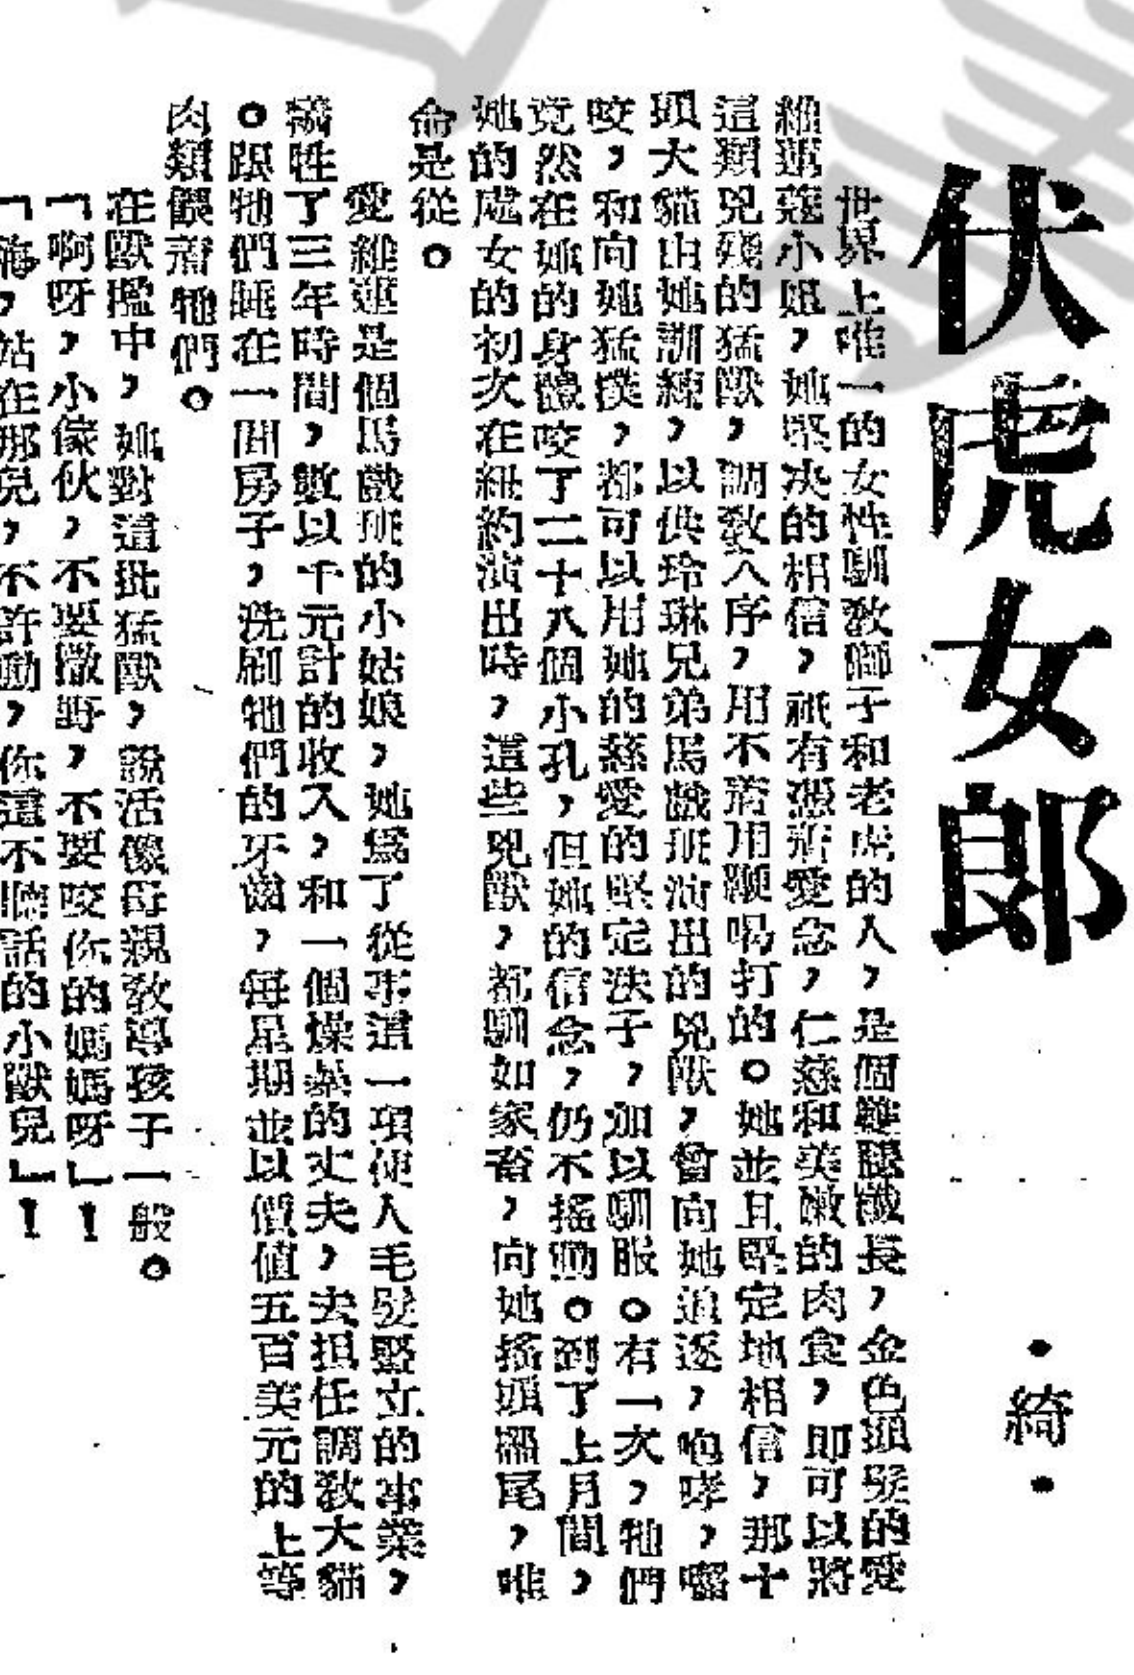 伏虎女郎
・綺・
世界上唯一的女性馴敎獅子和老虎的人，是個雙腿纖長，金色頭髮的愛
維蓮蔻小姐，她堅决的相信，祇有憑着愛念，仁慈和美嫩的肉食，即可以將
這類兇殘的猛獸，調敎入序，用不着用鞭喝打的。她並且堅定地相信，那十
頭大貓由她訓練，以供玲琳兄弟馬戲班演出的兇獸，曾向她追逐，咆哮，囓
咬，和向她猛撲，都可以用她的慈愛的堅定法子，加以馴服。有一次，牠們
竟然在她的身體咬了二十八個小孔，但她的信念，仍不搖動。到了上月間，
她的處女的初次在紐約演出時，這些兇獸，都馴如家畜，向她搖頭擺尾，唯
命是從。
愛維蓮是個馬戲班的小姑娘，她爲了從事這一項使人毛髮豎立的事業，
犧牲了三年時間，數以千元計的收入，和一個燥暴的丈夫，去担任調敎大貓
。跟牠們睡在一間房子，洗刷牠們的牙齒，每星期並以價值五百美元的上等
肉類餵着牠們。
在獸檻中，她對這批猛獸，說活像母親敎導孩子一般。
「啊呀，小傢伙，不要撒野，不要咬你的媽媽呀」！
「嗨，站在那兒，不許動，你這不聽話的小獸兒」！